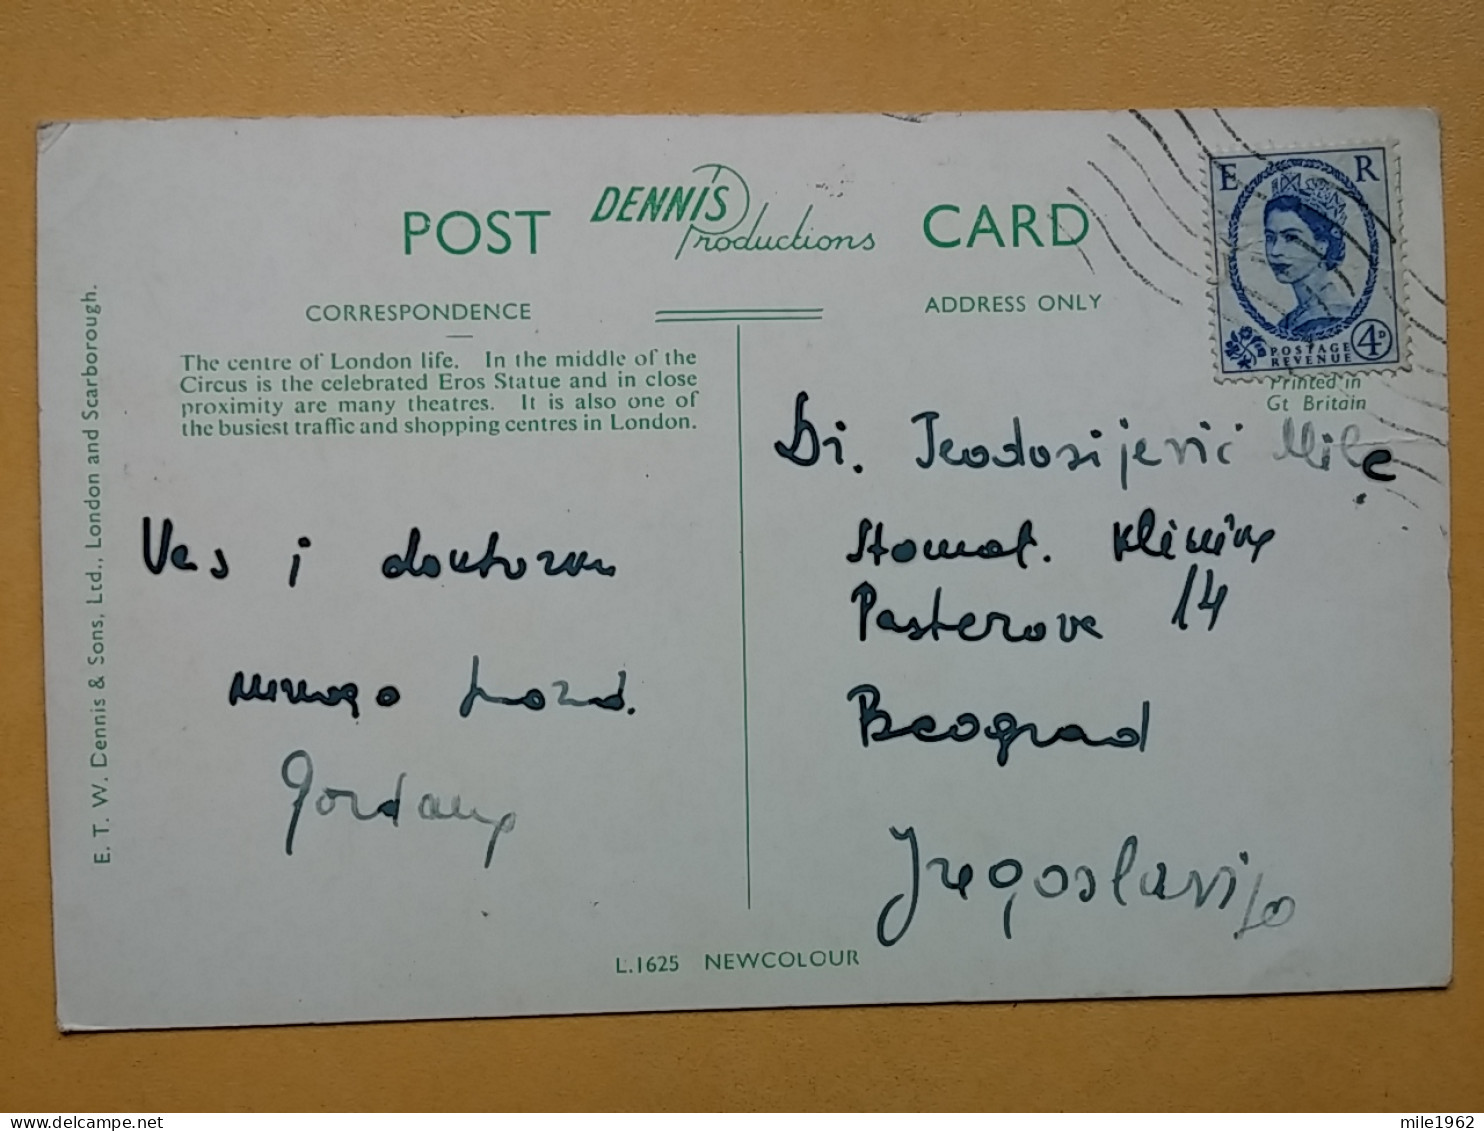 POST DENNIS Productions CARD
E R
POSTAGE
REVENUE
4D
CORRESPONDENCE
ADDRESS ONLY
Printed in
Gt Britain
The centre of London life. In the middle of the
Circus is the celebrated Eros Statue and in close
proximity are many theatres. It is also one of
the busiest traffic and shopping centres in London.
E. T. W. Dennis & Sons, Ltd., London and Scarborough.
Vas i
mnogo pozd.
Gordana
Dr. Teodosijević Mile
Stomat. klinika
Pasterova 14
Beograd
Jugoslavija
L.1625 NEWCOLOUR
mile1962